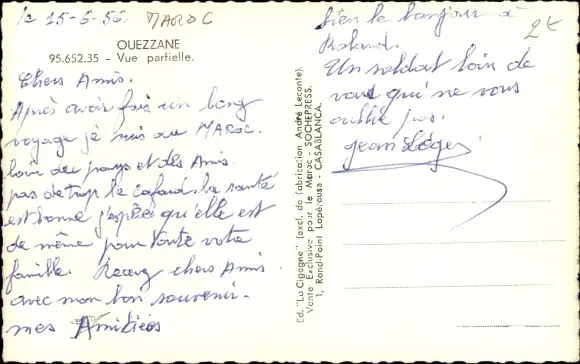 le 15-6-56 MAROC
OUEZZANE
95.652.35 - Vue partielle.
Chers Amis.
Après avoir fais un long
voyage je suis au MAROC.
loin du pays et des Amis
pas de trop le cafard. la santé
est bonne j'espère qu'elle est
de même pour toute votre
famille. Recevez chers Amis
avec mon bon souvenir.
mes Amitiées
bien le bonjour à
Roland.
Un soldat loin de
vous qui ne vous
oublie pas.
Jean Léger
2€
Ed. "La Cigogne" (excl. de fabrication André Leconte)
Vente Exclusive pour le Maroc - SOCHEPRESS.
1, Rond-Point Lapérouse - CASABLANCA.